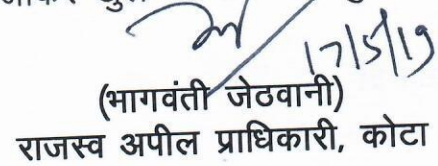 17/5/19
(भागवंती जेठवानी)
राजस्व अपील प्राधिकारी, कोटा